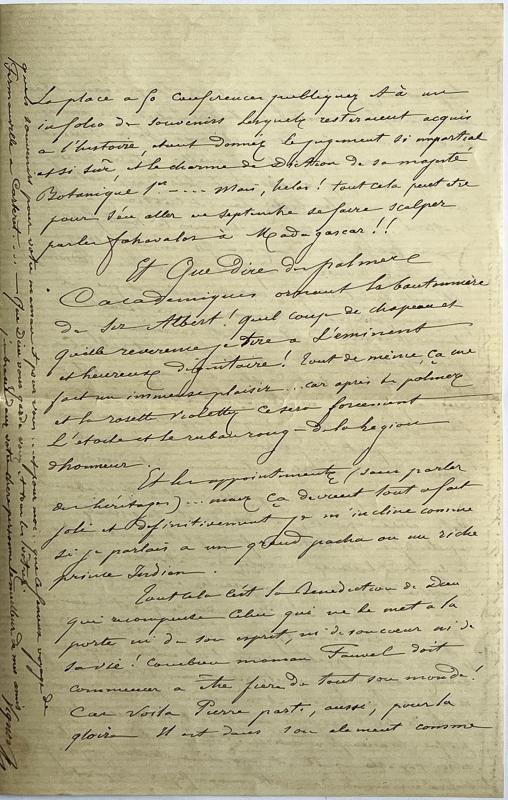 La place a 50 Conferences publiques et à un
infolio de souvenirs lesquels resteraient acquis
a l'histoire, etant donnés le jugement si impartial
et si sûr, et le charme de Diction de sa majesté
Botanique 1re ---- Mais, helas! tout cela peut être
pour s'en aller en septembre se faire scalper
par les fahavalos à Madagascar!!
Et Que dire des palmes
Cacademiques ornant la boutonnière
de Sir Albert! Quel coup de chapeau et
quelle reverence je tire a L'eminent
et heureux dignitaire! Tout de même, ça me
fait un immense plaisir... car après les palmes
et la rosette violette ce sera forcement
L'étoile et le ruban rouge de la Legion
d'honneur.
Et les appointements (sans parler
des héritages)... mais ça devient tout a fait
joli et definitivement je m'incline comme
si je parlais a un grand pacha ou un riche
prince Indien.
Tout cela c'est la Benediction de Dieu
qui recompense Celui qui ne le met a la
porte ni de son esprit, ni de son coeur ni de
sa vie! Combien maman Fauvel doit
commencer a être fière de tout son monde!
Car Voila Pierre parti, aussi, pour la
gloire Il est dans son element comme
quels souvenirs pour votre maman et pour vous.. et pour moi que ce fameux voyage de
a Carteret.... Que Dieu vous garde
votre chere personne le meilleur de mes amis